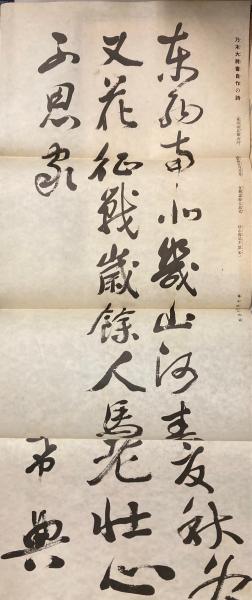 乃木大將書自作の詩
東西南北幾山河春夏秋冬
又花征戰歲餘人馬老壯心
不思家
希典